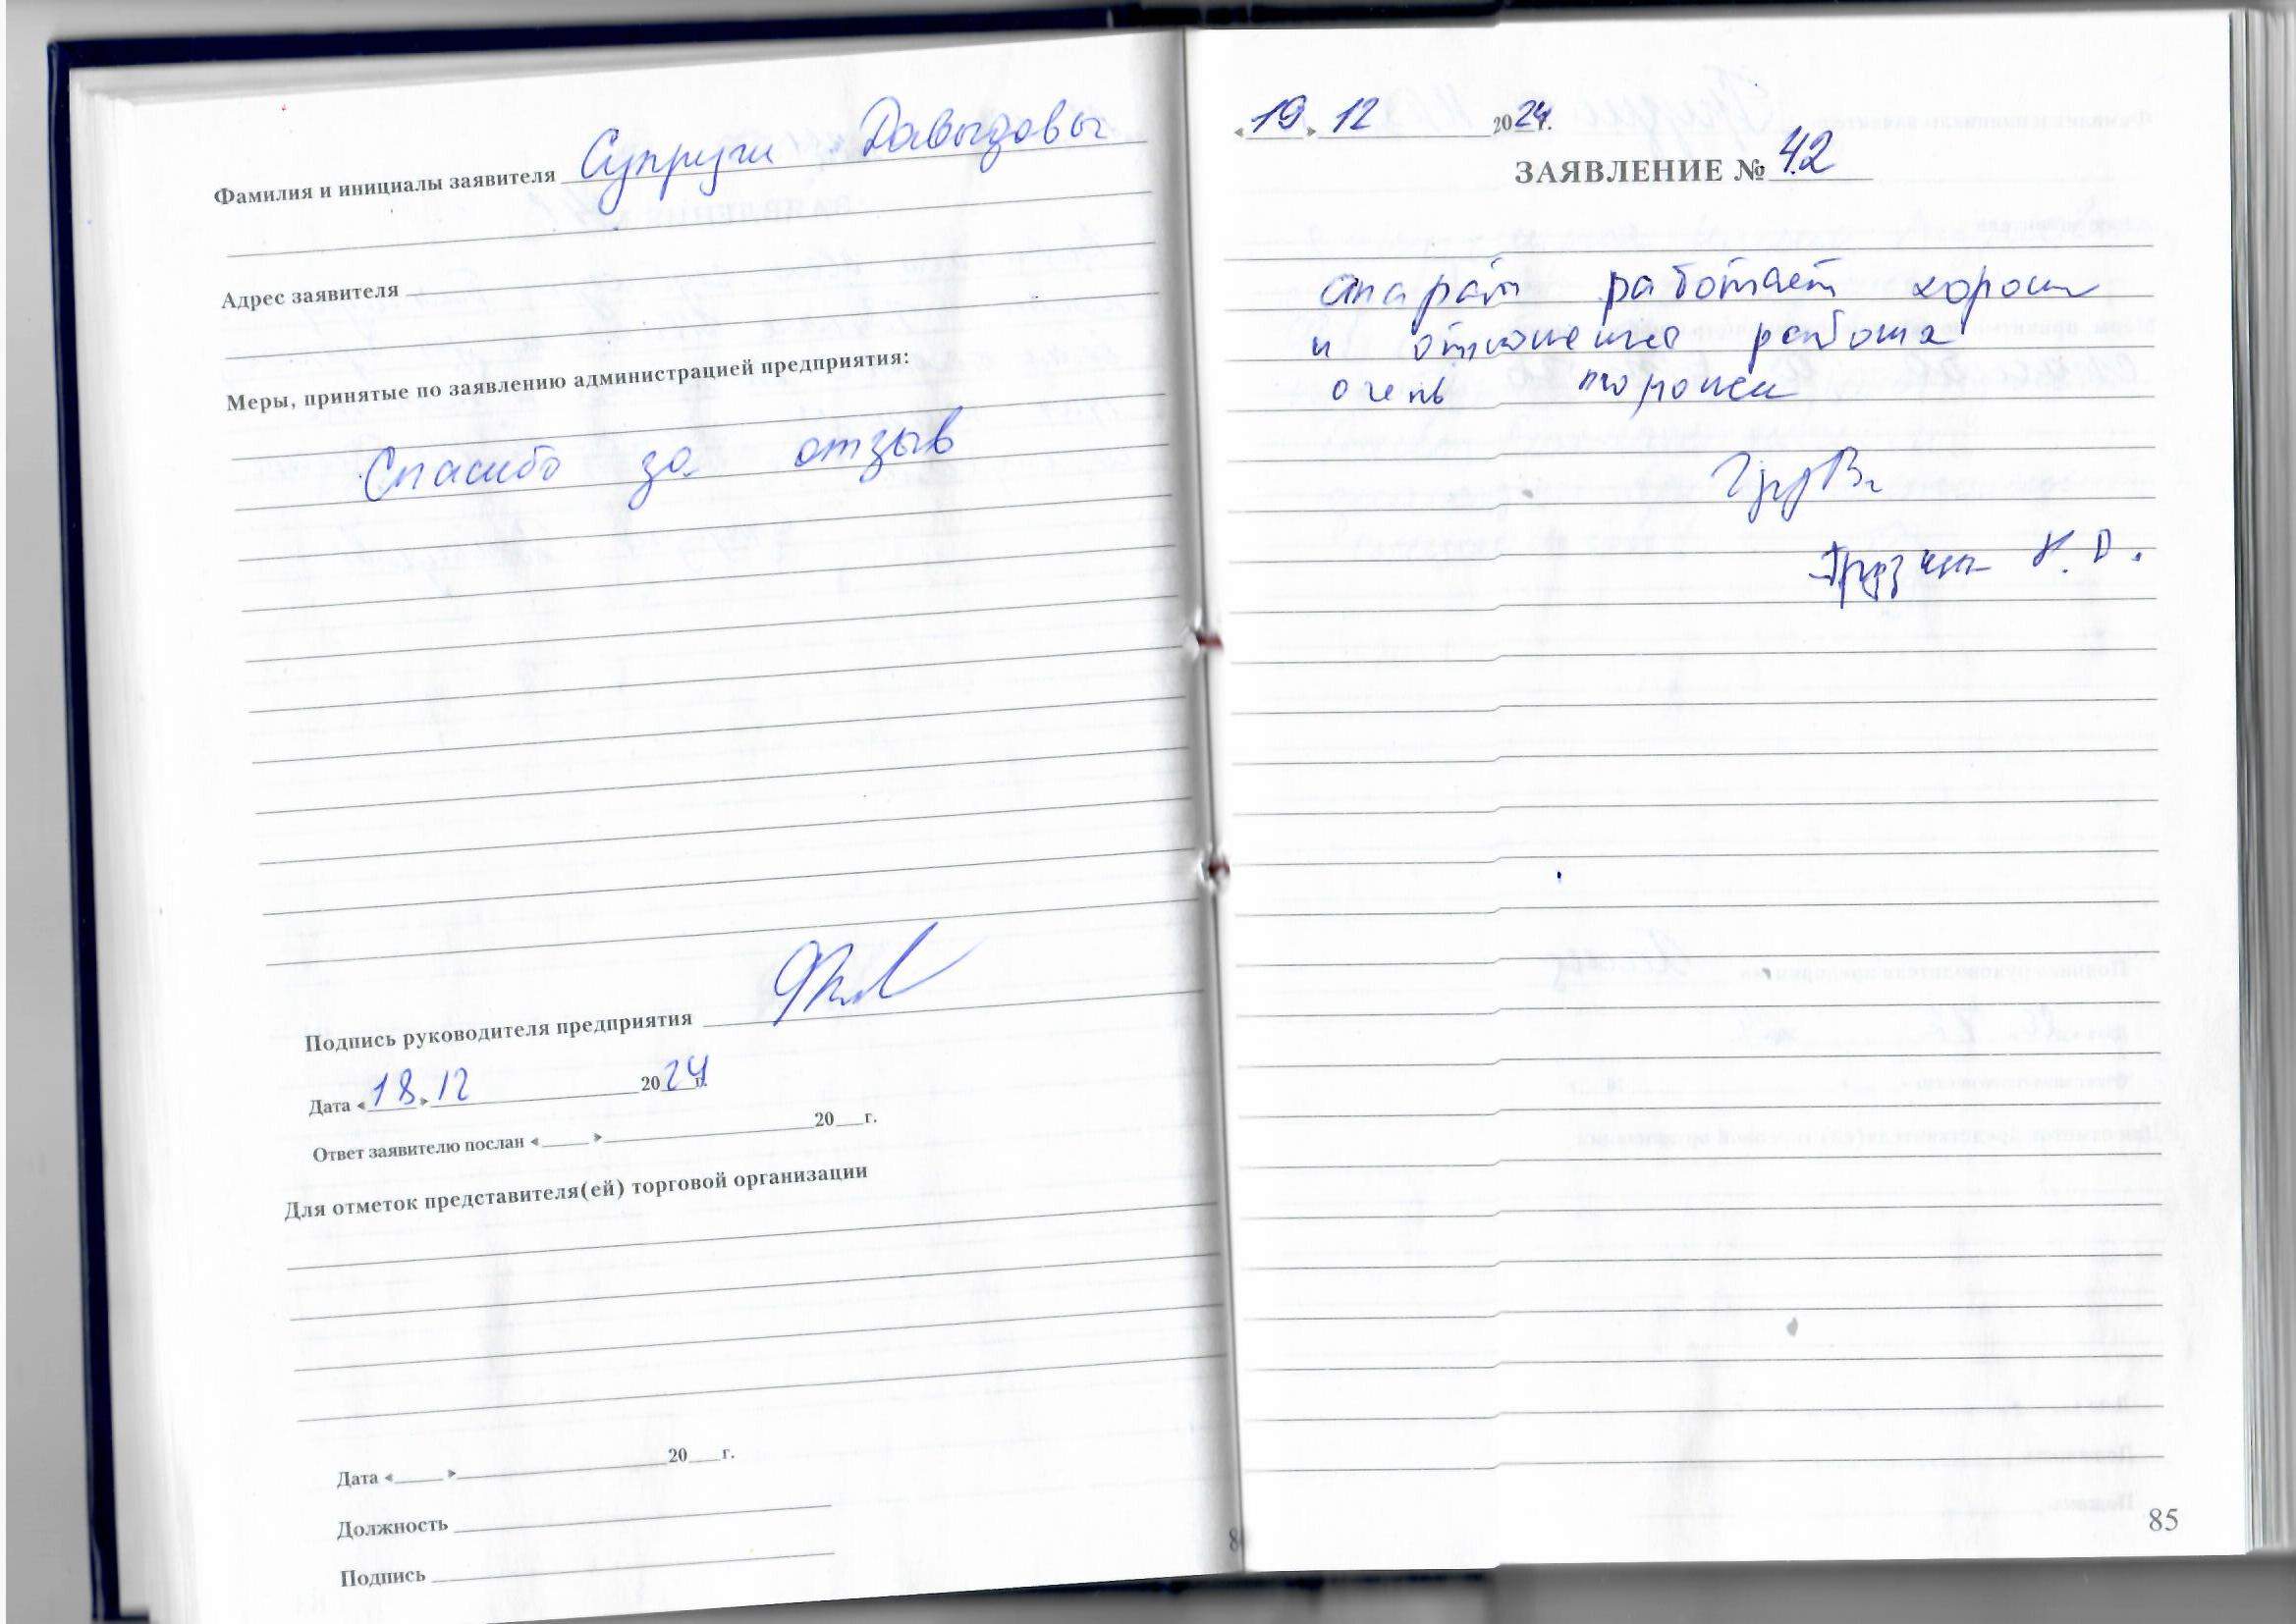 Фамилия и инициалы заявителя Супруги Давыдовы
Адрес заявителя
Меры, принятые по заявлению администрацией предприятия:
Спасибо за отзыв
Подпись руководителя предприятия
Дата «18» 12 2024 г.
Ответ заявителю послан « » 20 г.
Для отметок представителя(ей) торговой организации
Дата « » 20 г.
Должность
Подпись
«19» 12 2024г.
ЗАЯВЛЕНИЕ № 42
апарат работает хорош
и отношение
очень
85